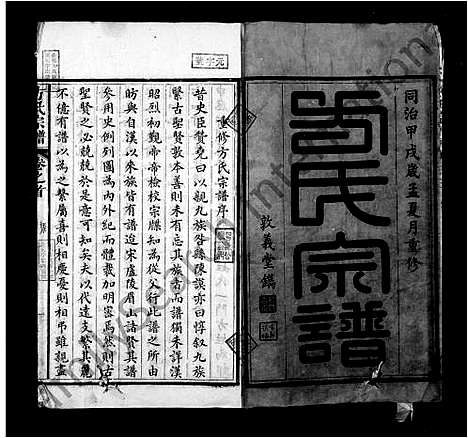 同治甲戌歲孟夏月重修
方氏宗譜
敦義堂鐫
元字號
重修方氏宗譜序
昔史臣贊堯曰以親九族咎繇陳謨亦曰惇叙九族
繄古聖賢敦本善則未有忘其族者而譜獨未詳漢
昭烈初觀帝檢校宗牒知為從父行此譜之所由
昉與自漢以來族皆有譜近宋廬陵眉山諸賢其譜
參用史例列圖為內外紀而體裁加明密焉然則古
聖賢之必兢兢於是意可知矣夫以代遠支繁其麗
不億有譜以為之繫屬喜則相慶憂則相弔雖親盡
方氏宗譜
卷之首